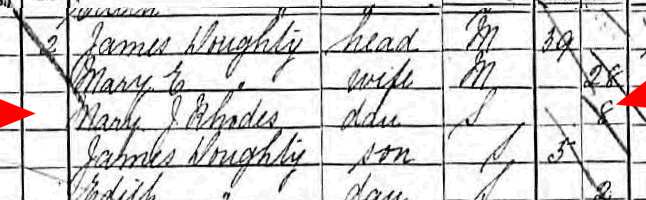 2 James Doughty head M 39
Mary E " wife M 28
Mary J Rhodes dau S 8
James Doughty son S 5
Edith " dau S 2